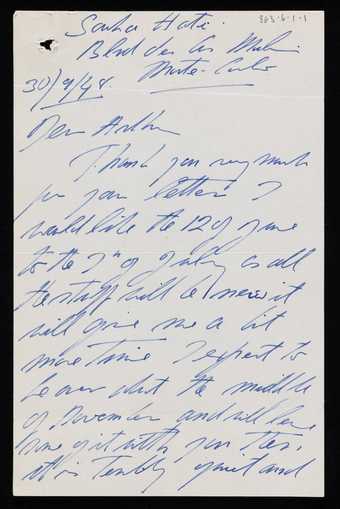 Hotel
Blvd des Moulins
Monte-Carlo
30/9/48.
Dear
Thank you very much
for your letter I
would like the 12 of June
to the 7th of July as all
the stuff will be new it
will give me a bit
more time I expect to
be over about the middle
of November and will
it with you then.
it is terribly quiet and